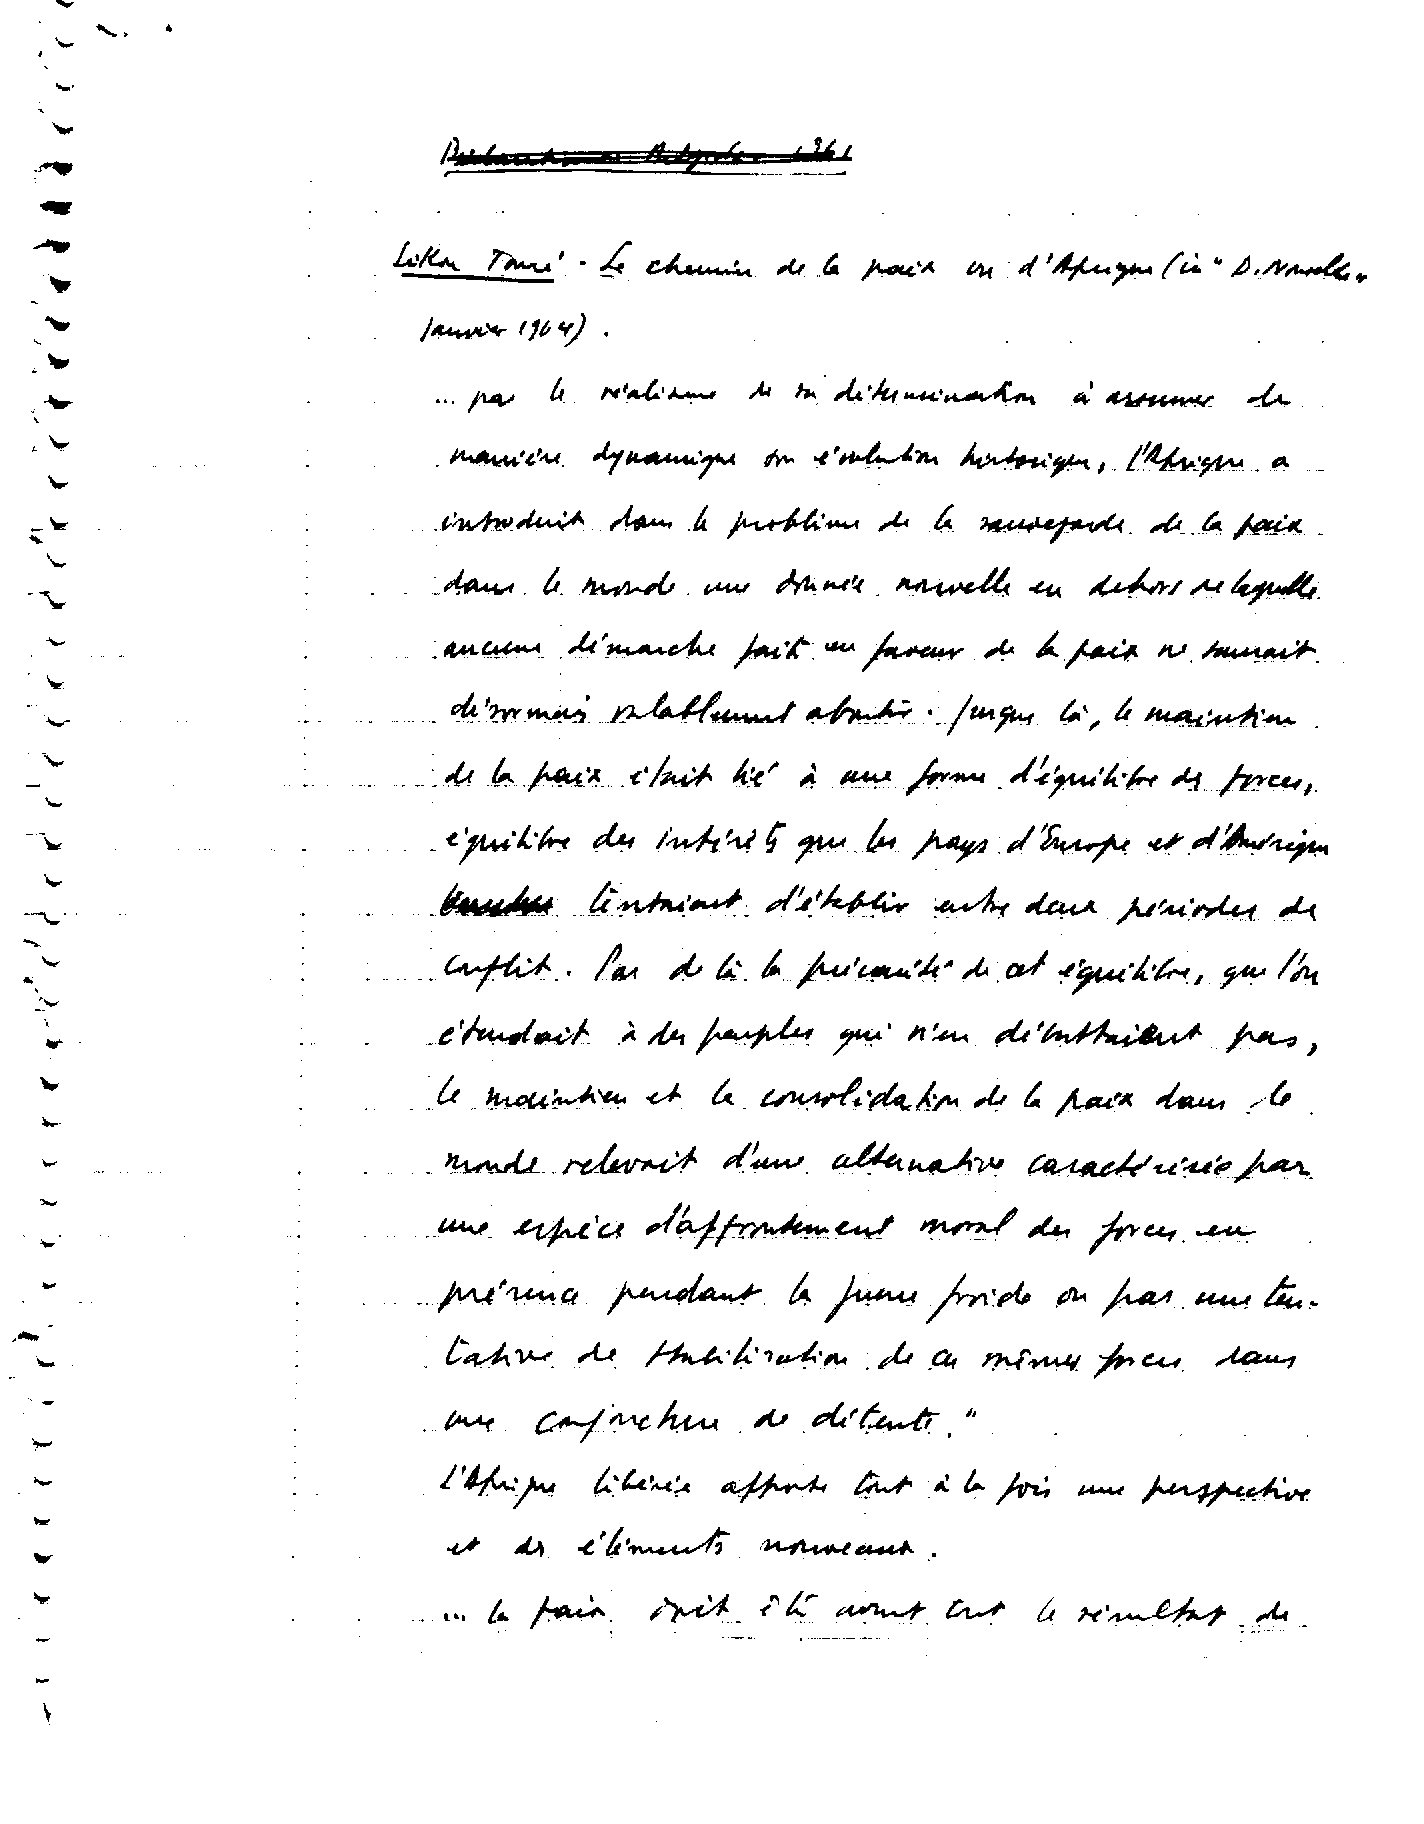 Sékou Touré - Le chemin de la paix vu d'Afrique (in "D. Nouvelle"
Janvier 1964).
... par le réalisme de sa détermination à assumer de
manière dynamique son évolution historique, l'Afrique a
introduit dans le problème de la sauvegarde de la paix
dans le monde une donnée nouvelle en dehors de laquelle
aucune démarche faite en faveur de la paix ne saurait
désormais valablement aboutir. Jusque là, le maintien
de la paix était lié à une forme d'équilibre des forces,
équilibre des intérêts que les pays d'Europe et d'Amérique
tentaient d'établir entre deux périodes de
conflit. Par de là la précarité de cet équilibre, que l'on
étendait à des peuples qui n'en débattaient pas,
le maintien et la consolidation de la paix dans le
monde relevait d'une alternative caractérisée par
une espèce d'affrontement moral des forces en
présence pendant la guerre froide ou par une ten-
tative de stabilisation de ces mêmes forces dans
une conjoncture de détente."
L'Afrique libérée apporte tout à la fois une perspective
et des éléments nouveaux.
... la paix doit être avant tout le résultat de